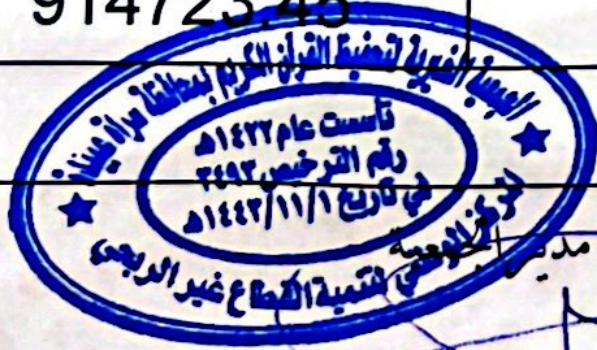 914723.45
الجمعية الخيرية لتحفيظ القرآن الكريم بمحافظة
تأسست عام ١٤٢٢هـ
رقم الترخيص ٣٤٩٣
في تاريخ ١٤٤٣/١١/١هـ
المركز الوطني لتنمية القطاع غير الربحي
مدير الجمعية